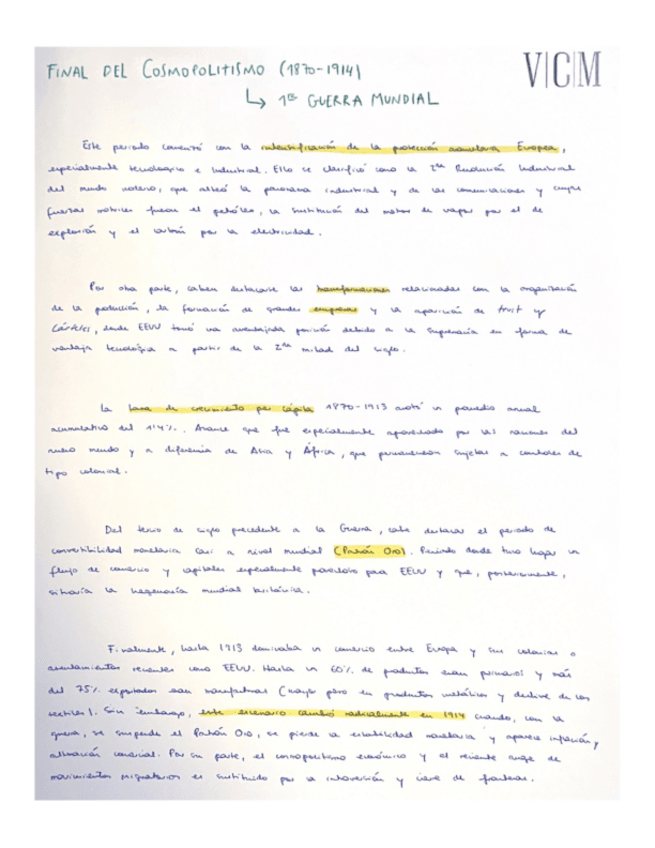 FINAL DEL COSMOPOLITISMO (1870-1914)
V|C|M
↳ 1ª GUERRA MUNDIAL
Este periodo comenzó con la intensificación de la protección Europea,
especialmente tecnológico e Industrial. Ello se clasificó como la 2da Revolución Industrial
del mundo moderno, que alteó la panorama industrial y de las comunicaciones y cuyas
fuerzas motrices fueron el petróleo, la sustitución del motor de vapor por el de
explosión y el carbón por la electricidad.
Por otra parte, caben destacarse las transformaciones relacionadas con la organización
de la producción, la formación de grandes empresas y la aparición de trust y
Cárteles, donde EEUU tomó una aventajada posición debido a la supremacía en forma de
ventaja tecnológica a partir de la 2da mitad del siglo.
La tasa de crecimiento per cápita 1870-1913 anotó un promedio anual
acumulativo del 1'4%. Avance que fue especialmente aprovechado por las naciones del
nuevo mundo y a diferencia de Asia y África, que permanecieron sujetas a controles de
tipo colonial.
Del tercio de siglo precedente a la Guerra, cabe destacar el periodo de
convertibilidad monetaria casi a nivel mundial (Patrón Oro). Periodo donde tuvo lugar un
flujo de comercio y capitales especialmente para EEUU y que, posteriormente,
situaría la hegemonía mundial británica.
Finalmente, hasta 1913 dominaba un comercio entre Europa y sus colonias o
asentamientos recientes como EEUU. Hasta un 60% de productos eran primarios y más
del 75% exportados eran manufacturas (mayor peso en productos metálicos y declive de los
textiles). Sin embargo, este escenario cambió radicalmente en 1914 cuando, con la
guerra, se suspende el Patrón Oro, se pierde la estabilidad monetaria y aparece inflación y
alteración comercial. Por su parte, el cosmopolitismo económico y el reciente auge de
movimientos migratorios es sustituido por la introversión y cierre de fronteras.